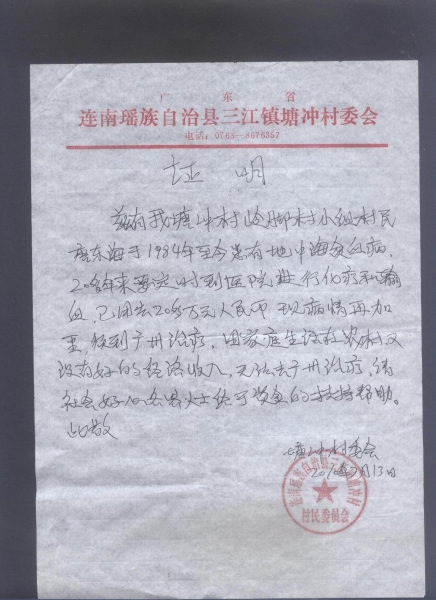 广东省
连南瑶族自治县三江镇塘冲村委会
电话:0763-8676357
证明
兹有我塘冲村 脚村小组村民
唐东海于1984年至今患有地中海贫血病,
20多年来要定时到医院进行化疗和输
血,已用去20多万元人民币,现病情再加
重,须到广州治疗,因家庭生活在农村又
没有好的经济收入,无法去广州治疗,请
社会好心各界人士给予资金的扶持帮助。
此致
塘冲村委会
月13日
村民委员会